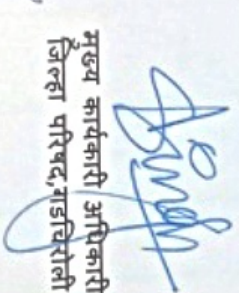 मुख्य कार्यकारी अधिकारी
जिल्हा परिषद,गडचिरोली